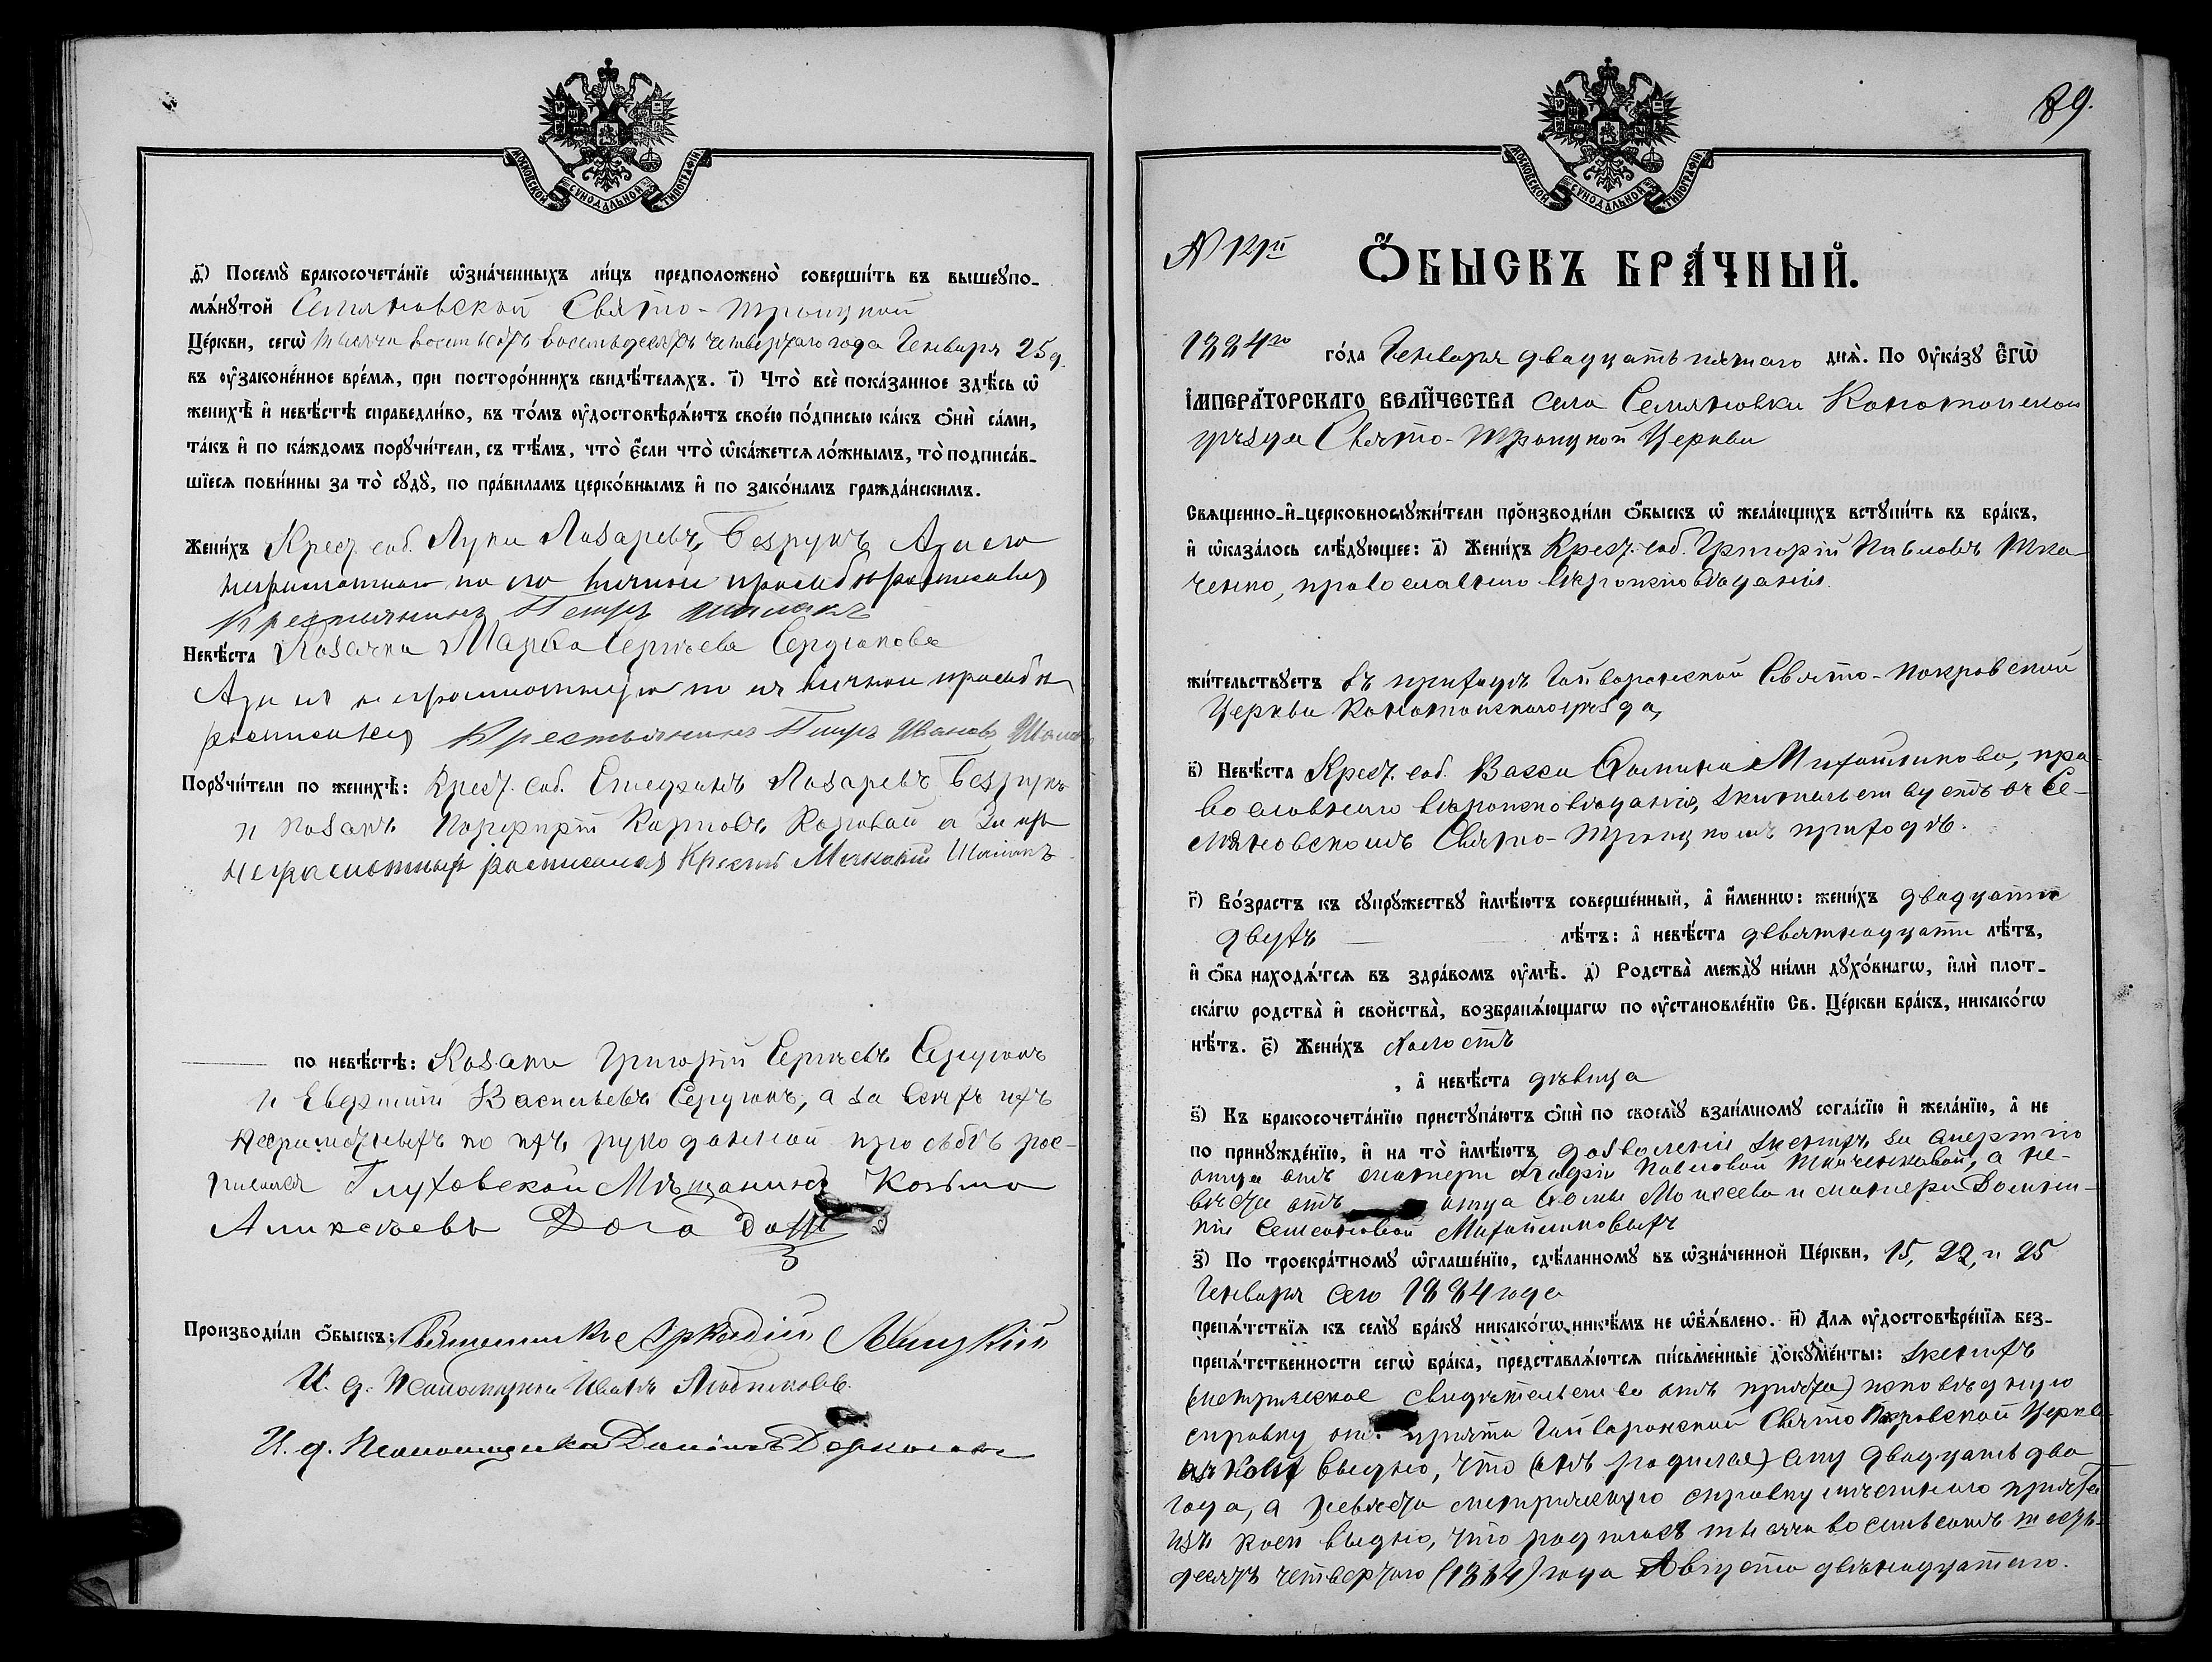 МОСКОВСКОЙ СѴНОДАЛЬНОЙ ТИПОГРАФІИ
д҃) Посемꙋ̀ бракосочета́нїе ѡ҆зна́ченныхъ ли́цъ предположено̀ соверши́ть въ вышеꙋпо-
мѧ́нꙋтой Семяновской Свято-Троицкой
Це́ркви, сегѡ̀ тысяча восемьсотъ восемьдесятъ четвертаго года Генваря 25 д.
въ ᲂу҆зако́ненное вре́мѧ, при посторо́ннихъ свидѣ́телѧхъ. і҃) Что̀ всѐ пока́занное здѣ́сь ѡ҆
женихѣ̀ и҆ невѣ́стѣ справедли́во, въ то́мъ ᲂу҆достовѣрѧ́ютъ свое́ю по́дписью ка́къ ѻ҆нѝ са́ми,
та́къ и҆ по ка́ждомъ порꙋчи́тели, съ тѣ́мъ, что̀ є҆́сли что̀ ѡ҆ка́жетсѧ ло́жнымъ, то̀ подписа́в-
шїесѧ пови́нны за то̀ сꙋдꙋ̀, по пра́виламъ церко́внымъ и҆ по зако́намъ гражда́нскимъ.
Жени́хъ Крест. соб. Лука Лазаревъ Безрукъ А за его
неграмотнаго по его личной просьбѣ росписался
Крестьянинъ Петръ Шамакъ
Невѣ́ста Козачка Марѳа Сергѣева Сердюкова
А за ея неграмотную по ея личной просьбѣ
росписался Крестьянинъ Петръ Ивановъ
Порꙋчи́тели по женихѣ̀: Крест. соб. Стефанъ Лазаревъ Безрукъ
и козакъ Порфирій Карповъ Коровай а за ихъ
неграмотныхъ росписался Крест. Шамакъ
по невѣ́стѣ: Козаки Григорій Сергѣевъ Сердюкъ
и Евфимій Васильевъ Сердюкъ, а за всѣхъ ихъ
неграмотныхъ по ихъ рукоданной просьбѣ рос-
писался Глуховской Мѣщанинъ Козьма
Алексѣевъ
Производи́ли ѻ҆́быскъ: Священникъ Аркадій
И. д. Псаломщика Иванъ
И. д. Псаломщика
МОСКОВСКОЙ СѴНОДАЛЬНОЙ ТИПОГРАФІИ
89.
N 12й
Ѻ҆БЫСКЪ БРА́ЧНЫЙ.
1884го го́да Генваря двадцать пятаго днѧ̀. По Оу҆ка́зꙋ Є҆ГѠ̀
І҆МПЕРА́ТОРСКАГО ВЕЛИ́ЧЕСТВА села Семяновки Конотопскаго
уѣзда Свято-Троицкой Церкви
Свѧщенно-и҆-церковнослꙋжи́тели производи́ли ѻ҆́быскъ ѡ҆ жела́ющихъ встꙋпи́ть въ бра́къ,
и҆ ѡ҆каза́лось слѣ́дꙋющее: а҃) Жени́хъ Крест. соб. Григорій Павловъ Тка-
ченко, православнаго вѣроисповѣданія.
жи́тельствꙋетъ въ приходѣ Гайворонской Свято-Покровской
Церкви Конотопскаго уѣзда,
в҃) Невѣ́ста Крест. соб. Васса Ѳомина Михайликова, пра-
вославнаго вѣроисповѣданія, жительствуетъ въ Се-
мяновскомъ Свято-Троицкомъ приходѣ.
г҃) Во́зрастъ къ сꙋпрꙋ́жествꙋ и҆мѣ́ютъ соверше́нный, а҆ и҆́меннѡ: жени́хъ двадцати
двухъ лѣ́тъ: а҆ невѣ́ста девятнадцати лѣ́тъ,
и҆ ѻ҆́ба находѧ́тсѧ въ здра́вомъ ᲂу҆мѣ̀. д҃) Родства̀ междꙋ̀ ни́ми дꙋхо́внагѡ, и҆лѝ плот-
ска́гѡ родства̀ и҆ свойства̀, возбранѧ́ющагѡ по ᲂу҆становле́нїю Св. Це́ркви бра́къ, никако́гѡ
нѣ́тъ. є҃) Жени́хъ холостъ
, а҆ невѣ́ста дѣвица
ѕ҃) Къ бракосочета́нїю пристꙋпа́ютъ ѻ҆нѝ по своемꙋ̀ взаи́мномꙋ согла́сїю и҆ жела́нїю, а҆ не
по принꙋжде́нїю, и҆ на то̀ и҆мѣ́ютъ дозволеніи женихъ за смертію
отца отъ матери Павловой Ткаченковой, а не-
вѣста отъ отца Ѳомы Моисеева и матери Домни-
кіи Семеновой Михайликовыхъ
з҃) По троекра́тномꙋ ѡ҆глаше́нїю, сдѣ́ланномꙋ въ ѡ҆зна́ченной Це́ркви, 15, 22, и 25
Генваря сего 1884 года
препѧ́тствїѧ къ семꙋ̀ бра́кꙋ никако́гѡ никѣ́мъ не ѡ҆б̾ѧ́влено. и҃) Длѧ ᲂу҆достовѣре́нїѧ без-
препѧ́тственности сегѡ̀ бра́ка, представлѧ́ютсѧ пи́сьменные докꙋме́нты: женихъ
(метрическое свидѣтельство отъ причта) исповѣдную
справку отъ причта Гайворонской Свято Покровской Церкви
изъ коей видно, что (онъ родился) ему двадцать два
года, а невѣста метрическую справку мѣстнаго причта
изъ коей видно, что родилась тысяча восемьсотъ шесть-
десятъ четвертаго (1864) года Августа двѣнадцатаго.